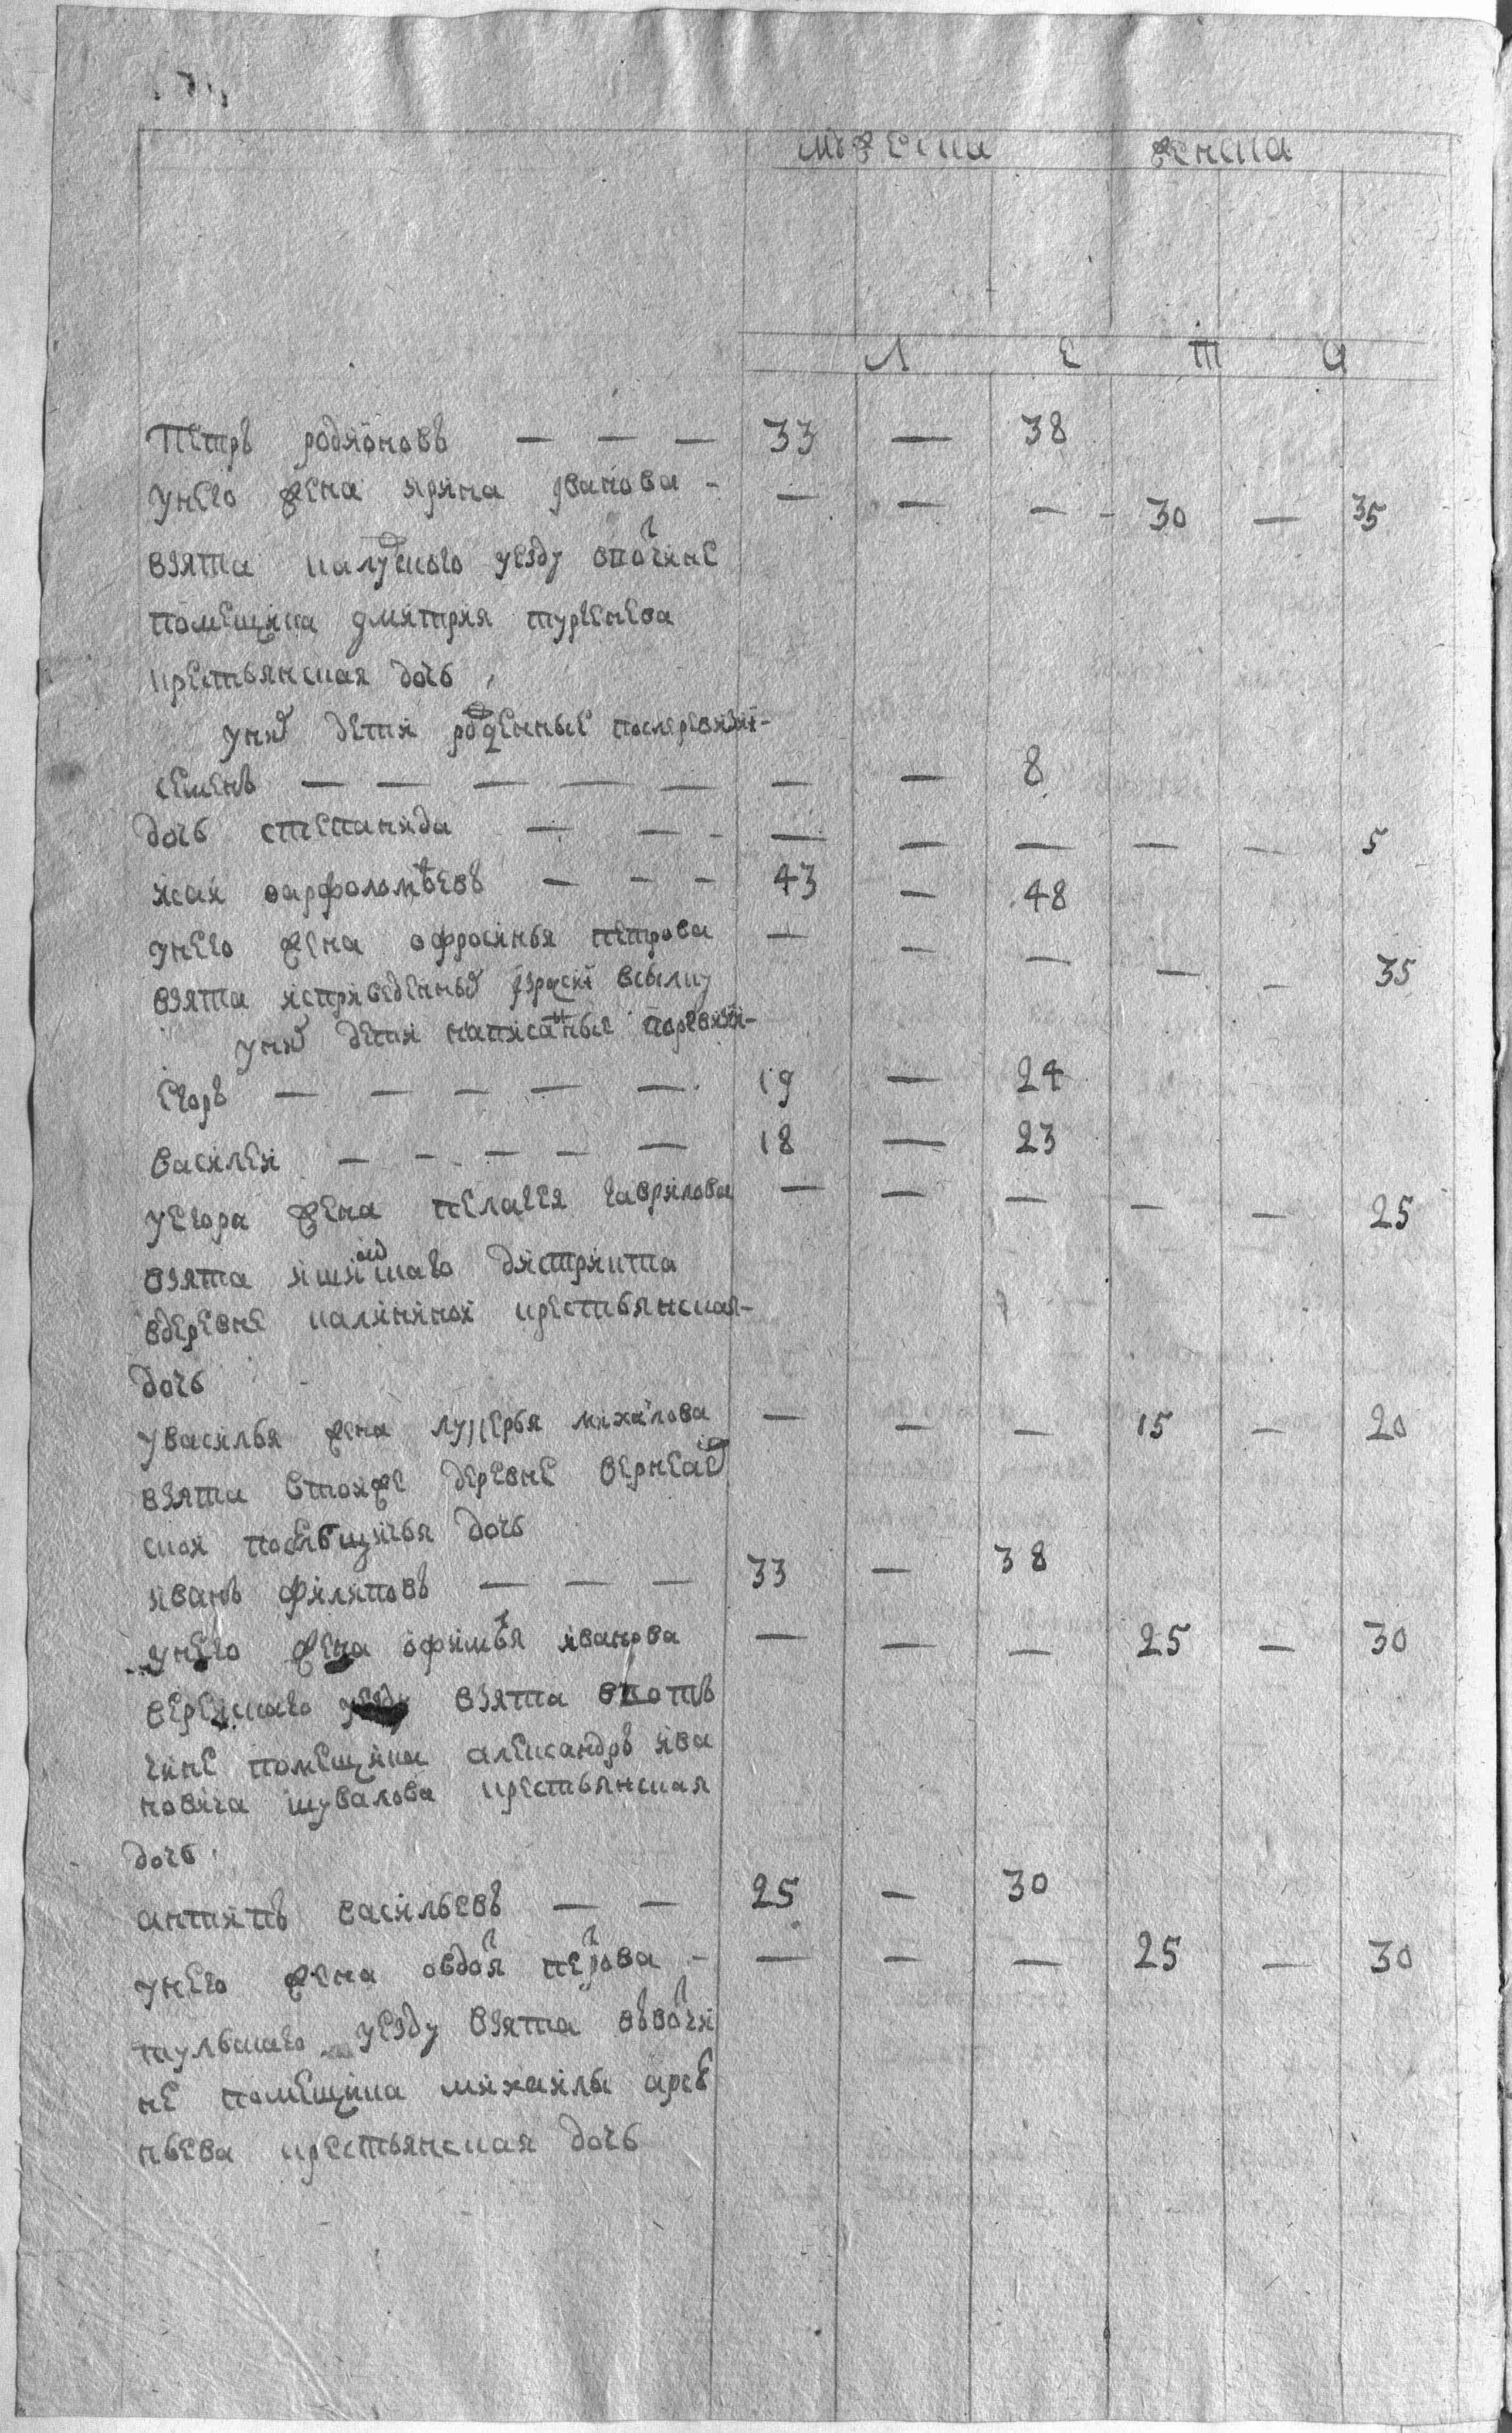 мужеска женска
Л Е Т А
Петръ родяоновъ — — — 33 — 38
унего жена ярина Иванова — — — — 30 — 35
взята калужского уезду вотчине
помещика дмитрия тургенева
крестьянская дочь
уних дети рожденные послеревизии
семенъ — — — — — — — 8
дочь степанида — — — — — — — — 5
исаи варфоломеевъ — — — 43 — 48
унего жена офросинья петрова — — — — — 35
взята исприведенных ссылку
уних дети написанные поревизии
Егоръ — — — — — 19 — 24
василеи — — — — — 18 — 23
уегора жена пелагея гаврилова — — — — — 25
взята ишимского дистрикта
вдеревне калининои крестьянская
дочь
увасилья жена лукерья михаилова — — — 15 — 20
взята втоиже деревне
скои посельщичья дочь
иванъ филиповъ — — — 33 — 38
унего жена офимья иванова — — — 25 — 30
взята вот
чине помещика александръ ива
новича шувалова крестьянская
дочь
антипъ васильевъ — — 25 — 30
унего жена овдотя петрова — — — — 25 — 30
тульскаго уезду взята ввотчи
не помещика михаилы арсе
ньева крестьянская дочь